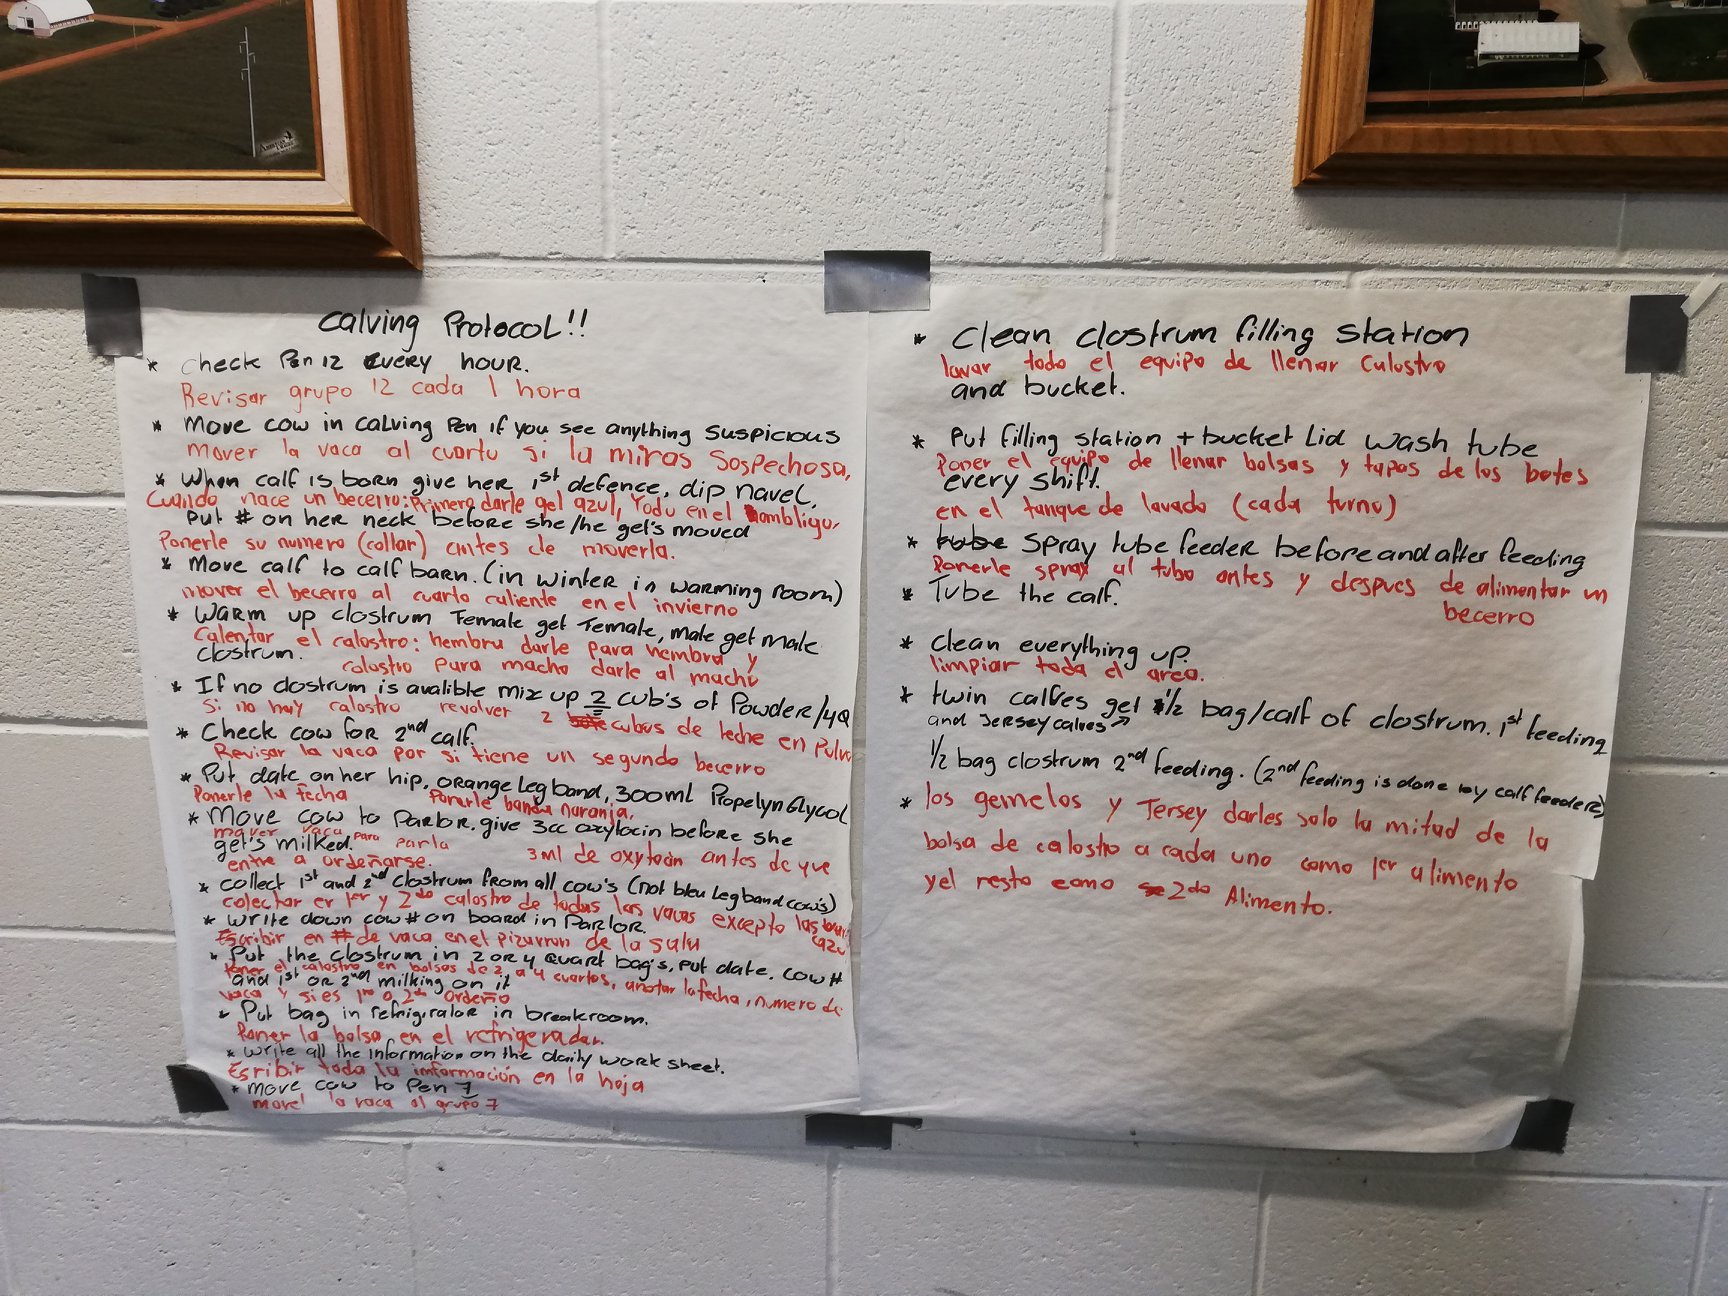 Calving Protocol!!
* Check Pen 12 every hour.
Revisar grupo 12 cada 1 hora
* Move cow in calving Pen if you see anything suspicious
mover la vaca al cuarto si la miras sospechosa,
* When calf is born give her 1st defence, dip navel,
Cuando nace un becerro: Primero darle gel azul, Yodo en el ombligo,
Put # on her neck before she/he get's moved
Ponerle su numero (collar) antes de moverla.
* Move calf to calf barn. (in winter in warming room)
mover el becerro al cuarto caliente en el invierno
* Warm up clostrum Female get Female, male get male
Calentar el calostro: hembra darle para hembra y
clostrum.
calostro para macho darle al macho
* If no clostrum is avalible mix up 2 cub's of Powder/4Q
Si no hay calostro revolver 2 cubos de leche en Polvo
* Check cow for 2nd calf.
Revisar la vaca por si tiene un segundo becerro
* Put date on her hip, orange leg band, 300ml Propelyn Glycol
Ponerle la fecha Ponerle banda naranja,
* Move cow to Parlor. give 3cc oxytocin before she
mover vaca para parla
get's milked.
3 ml de oxytocin antes de que
entre a ordeñarse.
* collect 1st and 2nd clostrum from all cow's (not bleu leg band cow's)
colectar er 1er y 2do calostro de todas las vacas excepto las
* Write down cow # on board in Parlor.
Escribir en # de vaca en el pizarron de la sala
* Put the clostrum in 2 or 4 quart bag's, put date. cow #
Poner el calostro en bolsas de 2, a 4 cuartos, anotar la fecha, numero de
and 1st or 2nd milking on it
vaca y si es 1ro o 2do ordeño
* Put bag in refrigirator in breakroom.
Poner la bolsa en el refrigerador.
* write all the information on the daily work sheet.
Esribir toda la imformación en la hoja
* move cow to Pen 7
mover la vaca al grupo 7
* Clean clostrum filling station
lavar todo el equipo de llenar Calostro
and bucket.
* Put filling station + bucket Lid wash tube
Poner el equipo de llenar bolsas y tapas de los botes
every shift.
en el tanque de lavado (cada turno)
* tube Spray tube feeder before and after feeding
Ponerle spray al tubo antes y despues de alimentar un
* Tube the calf.
becerro
* Clean everything up.
limpiar toda el area.
* twin calves get 1/2 bag/calf of clostrum. 1st feeding
and Jersey calves
1/2 bag clostrum 2nd feeding. (2nd feeding is done by calf feeders)
* los gemelos y Jersey darles solo la mitad de la
bolsa de calostro a cada uno como 1er alimento
y el resto como 2do Alimento.